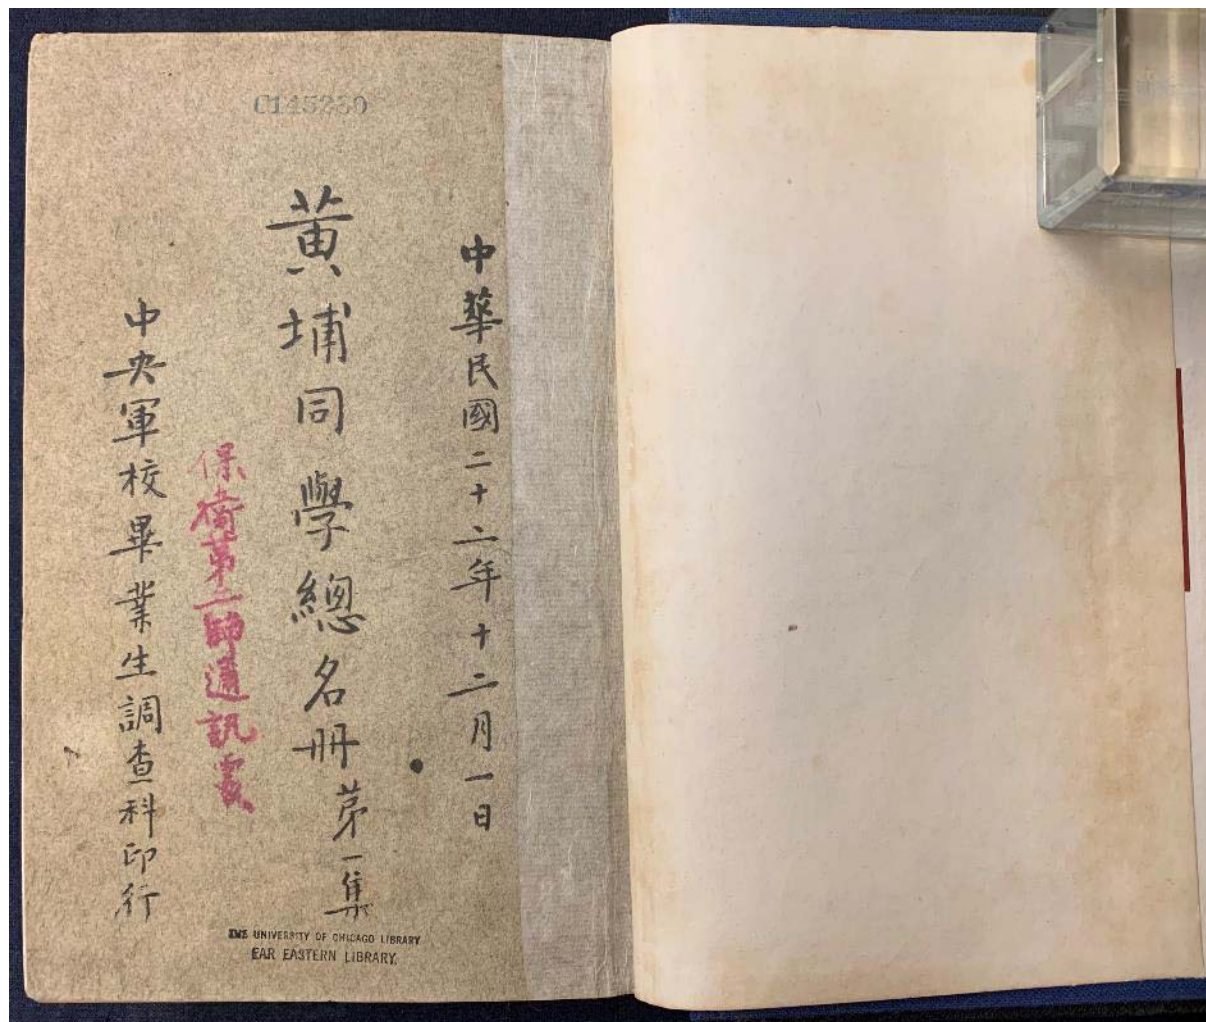 C145230
中華民國二十二年十二月一日
黃埔同學總名冊 第一集
保衛第二師通訊處
中央軍校畢業生調查科印行
THE UNIVERSITY OF CHICAGO LIBRARY
FAR EASTERN LIBRARY